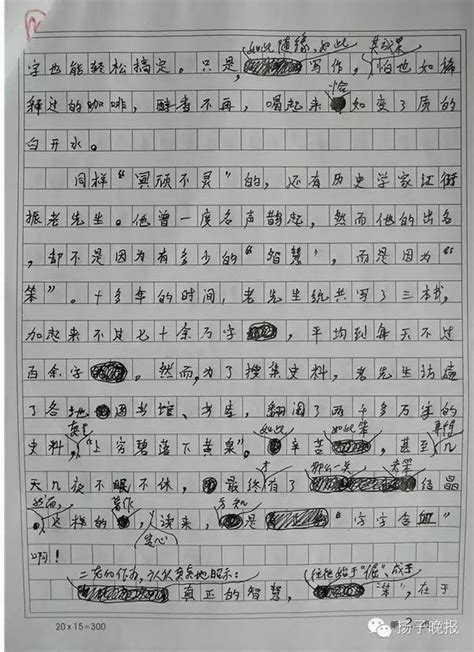 如此随缘、如此 其成果
字也能轻松搞定。只是,写作,恐怕也如稀
恰
释过的咖啡,醇香不再,喝起来如变了质的
白开水。
同样“冥顽不灵”的,还有历史学家江衔
振老先生。他曾一度名声鹊起,然而他的出名
,却不是因为有多少的“智慧”,而是因为“
笨”。十多年的时间,老先生统共写了三本书,
加起来不过七十余万字,平均到每天不过
百余字。然而,为了搜集史料,老先生访遍
了各地图书馆、书库,翻阅了两千多万字的
如此 如此笨 弄得
史料,“上穷碧落下黄泉”。辛苦,甚至几
才 那么一点 老笨
天几夜不眠不休,最终有了结晶
然而, 著作 方知
。这样的,读来,是“字字含血”
安心
啊!
二老的作为,认认真真地昭示: 往往始于“倔”、成于
真正的智慧,“笨”,在于
20x15=300
第2
扬子晚报